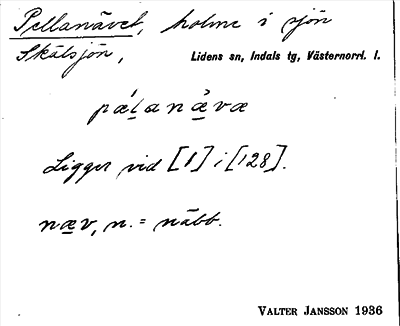 Pellanävet, holme i sjön
Skälsjön,
Lidens sn, Indals tg, Västernorrl. l.
pæḷanæ̀væ
Ligger vid [1] i [128].
næv, n. = näbb.
VALTER JANSSON 1936